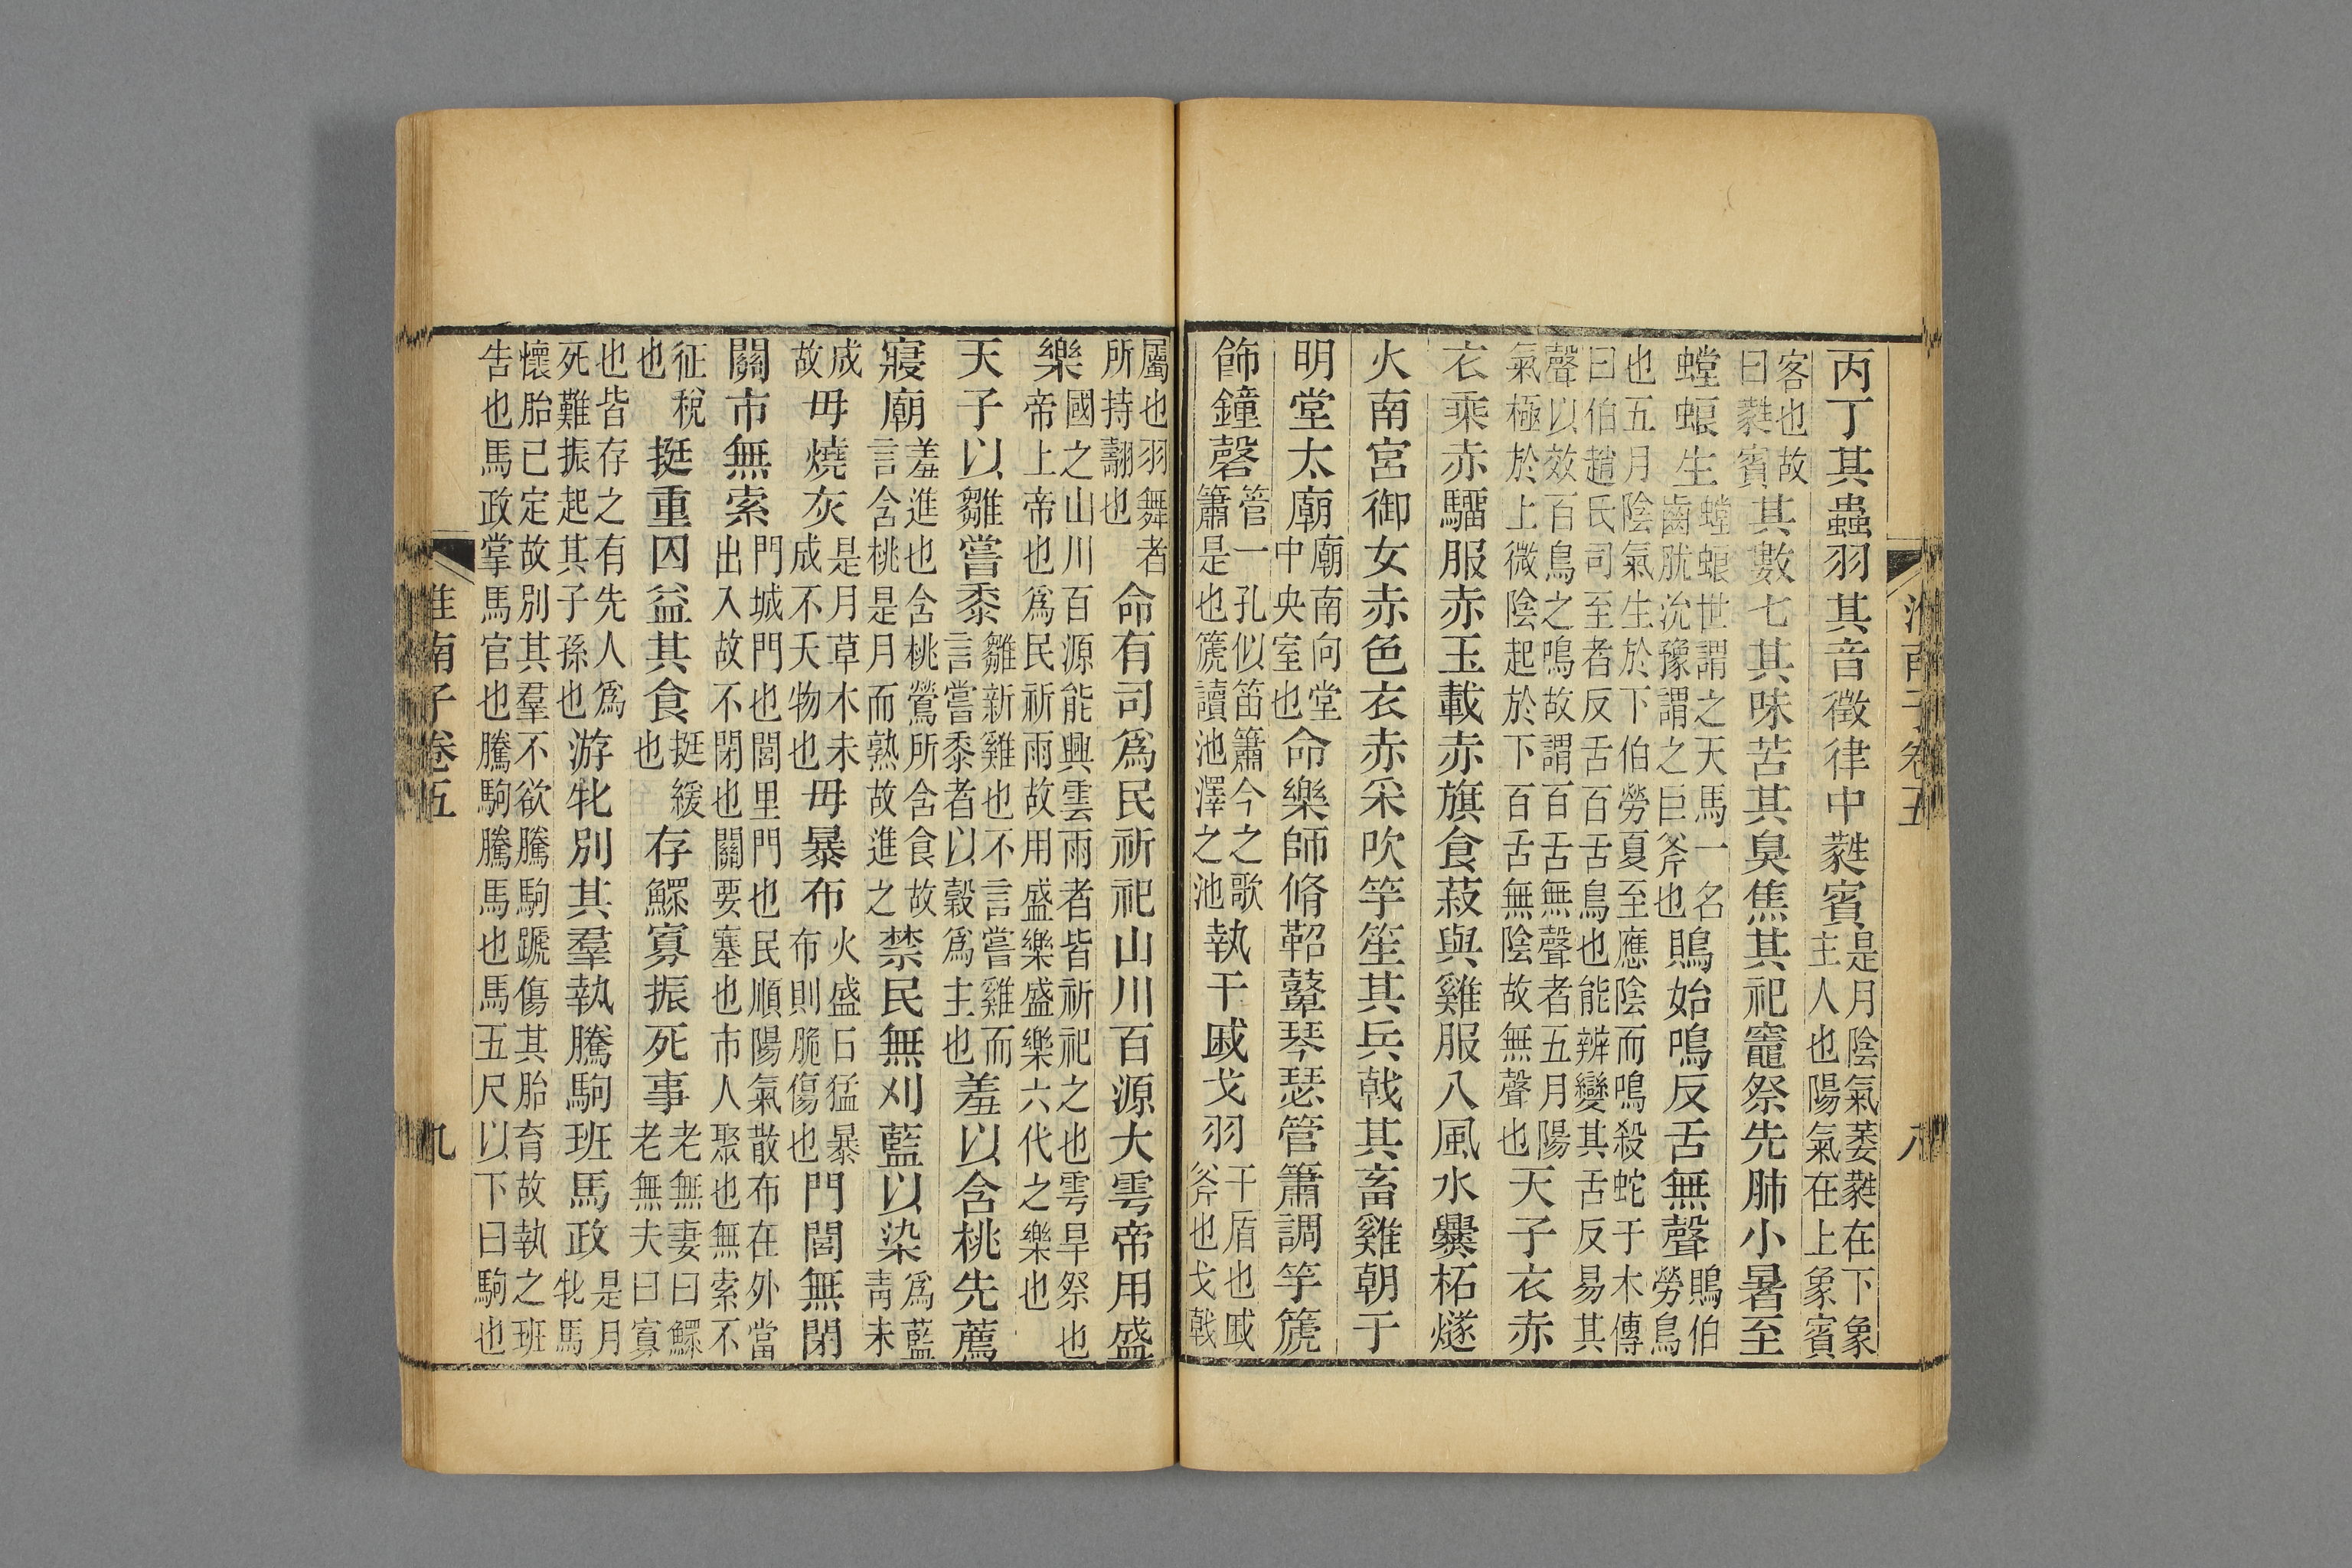 丙丁其蟲羽其音徵律中蕤賓是月陰氣萎蕤在下象主人也陽氣在上象賓
客也故曰蕤賓其數七其味苦其臭焦其祀竈祭先肺小暑至
螳蜋生螳蜋世謂之天馬一名齒肬沇豫謂之巨斧也鵙始鳴反舌無聲鵙伯勞鳥
也五月陰氣生於下伯勞夏至應陰而鳴殺蛇于木傳曰伯趙氏司至者反舌百舌鳥也能辨變其舌反易其
聲以效百鳥之鳴故謂百舌無聲者五月陽氣極於上微陰起於下百舌無陰故無聲也天子衣赤
衣乘赤騮服赤玉載赤旗食菽與雞服八風水爨柘燧
火南宮御女赤色衣赤采吹竽笙其兵戟其畜雞朝于
明堂太廟廟南向堂中央室也命樂師脩鞀鼙琴瑟管簫調竽篪
飾鐘磬管一孔似笛簫今之歌簫是也篪讀池澤之池執干戚戈羽干盾也戚斧也戈戟
屬也羽舞者所持翿也命有司爲民祈祀山川百源大雩帝用盛
樂國之山川百源能興雲雨者皆祈祀之也雩旱祭也帝上帝也爲民祈雨故用盛樂盛樂六代之樂也
天子以雛嘗黍雛新雞也不言嘗雞而言嘗黍者以穀爲主也羞以含桃先薦
寢廟羞進也含桃鶯所含食故言含桃是月而熟故進之禁民無刈藍以染爲藍青未
成故毋燒灰是月草木未成不夭物也毋暴布火盛日猛暴布則脆傷也門閭無閉
關市無索門城門也閭里門也民順陽氣散布在外當出入故不閉也關要塞也市人聚也無索不
征稅也挺重囚益其食挺緩也存鰥寡振死事老無妻曰鰥老無夫曰寡
也皆存之有先人爲死難振起其子孫也游牝別其羣執騰駒班馬政是月牝馬
懷胎已定故別其羣不欲騰駒蹏傷其胎育故執之班告也馬政掌馬官也騰駒騰馬也馬五尺以下曰駒也
淮南子卷五
八
淮南子卷五
九